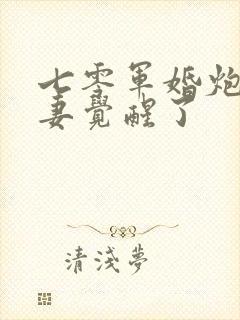 七零军婚炮
妻觉醒了
清浅梦